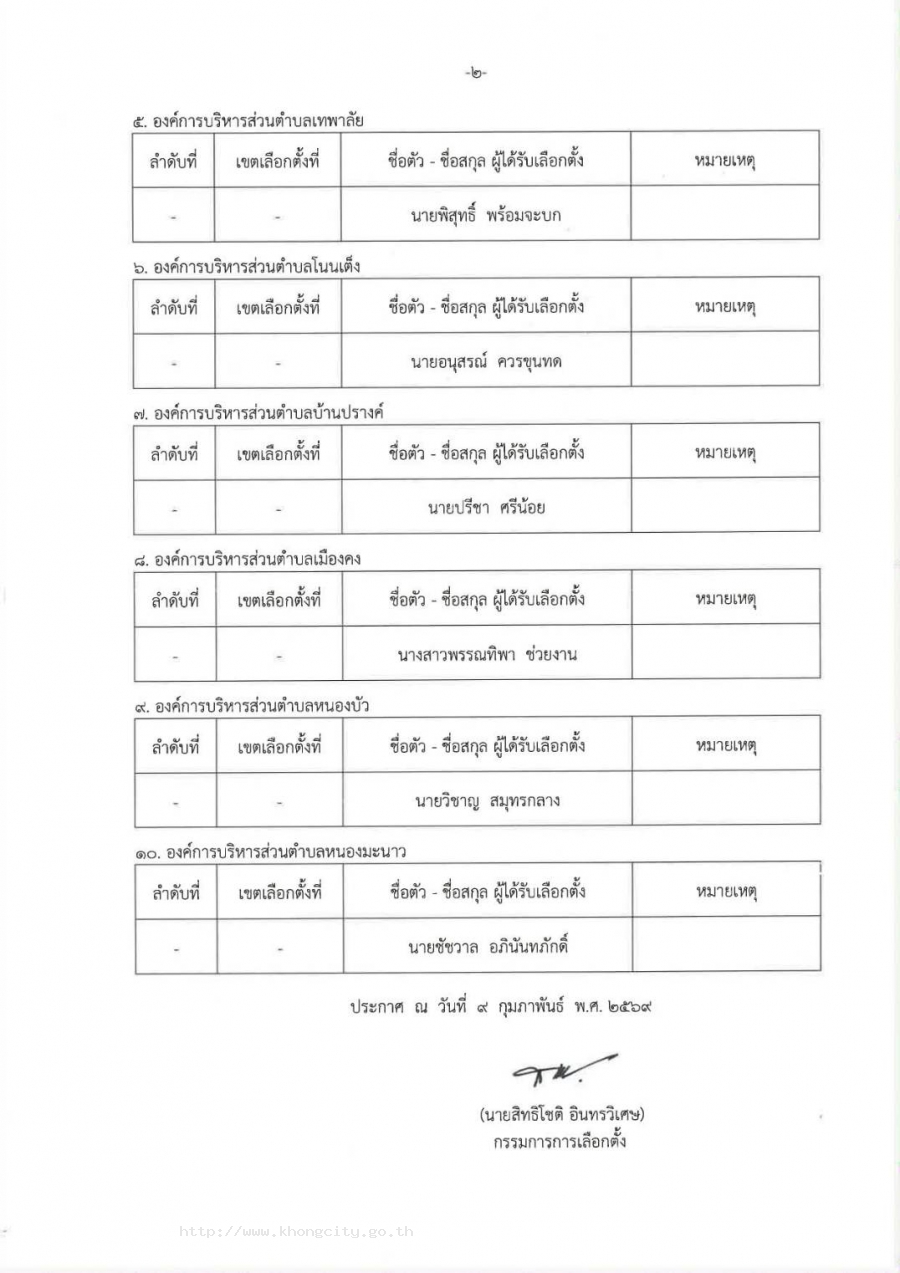 -๒-
๕. องค์การบริหารส่วนตำบลเทพาลัย
ลำดับที่ เขตเลือกตั้งที่ ชื่อตัว - ชื่อสกุล ผู้ได้รับเลือกตั้ง หมายเหตุ
- - นายพิสุทธิ์ พร้อมจะบก
๖. องค์การบริหารส่วนตำบลโนนเต็ง
ลำดับที่ เขตเลือกตั้งที่ ชื่อตัว - ชื่อสกุล ผู้ได้รับเลือกตั้ง หมายเหตุ
- - นายอนุสรณ์ ควรขุนทด
๗. องค์การบริหารส่วนตำบลบ้านปรางค์
ลำดับที่ เขตเลือกตั้งที่ ชื่อตัว - ชื่อสกุล ผู้ได้รับเลือกตั้ง หมายเหตุ
- - นายปรีชา ศรีน้อย
๘. องค์การบริหารส่วนตำบลเมืองคง
ลำดับที่ เขตเลือกตั้งที่ ชื่อตัว - ชื่อสกุล ผู้ได้รับเลือกตั้ง หมายเหตุ
- - นางสาวพรรณทิพา ช่วยงาน
๙. องค์การบริหารส่วนตำบลหนองบัว
ลำดับที่ เขตเลือกตั้งที่ ชื่อตัว - ชื่อสกุล ผู้ได้รับเลือกตั้ง หมายเหตุ
- - นายวิชาญ สมุทรกลาง
๑๐. องค์การบริหารส่วนตำบลหนองมะนาว
ลำดับที่ เขตเลือกตั้งที่ ชื่อตัว - ชื่อสกุล ผู้ได้รับเลือกตั้ง หมายเหตุ
- - นายชัชวาล อภินันทภักดิ์
ประกาศ ณ วันที่ ๙ กุมภาพันธ์ พ.ศ. ๒๕๖๙
(นายสิทธิโชติ อินทรวิเศษ)
กรรมการการเลือกตั้ง
http://www.khongcity.go.th